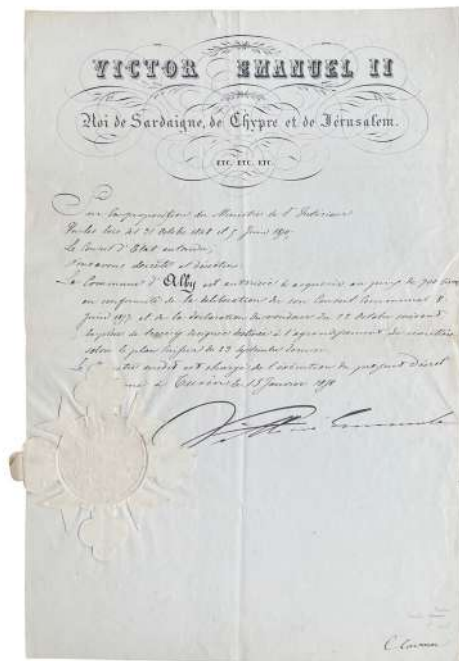 VICTOR EMANUEL II
Roi de Sardaigne, de Chypre et de Jérusalem.
ETC. ETC. ETC.
Sur la proposition du Ministre de l'Intérieur
Vu les lois des 31 Octobre 1848 et 5 Juin 1850
Le Conseil d'Etat entendu;
Nous avons décrété et décrétons
La Commune d'Alby est autorisée à acquérir au prix de 700
en conformité de la délibération de son Conseil Communal 8
Juin 1857 et de la déclaration du vendeur du 22 Octobre suivant
la pièce de terrain destinée à l'agrandissement du cimetière
selon le plan 23 Septembre dernier
Le est chargé de l'exécution du présent Décret
à Turin le 15 Janvier 1858
C. Cavour